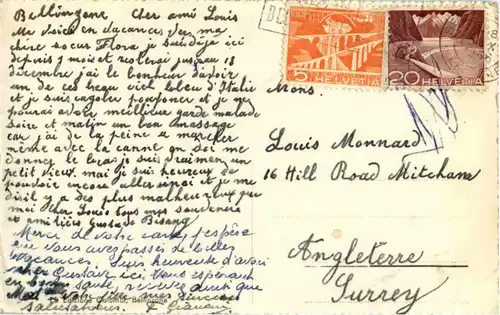 Bellinzone Cher ami Louis
Me voici en vacances ma
chère soeur Flora je suis déjà ici
depuis 7 mois et resterai jusqu'au 18
décembre j'ai le bonheur d'avoir
un de ces beau ciel bleu d'Italie
et je suis
pourai avoir meilleur garde malade
Soire et matin un bon massage
car j'ai de la peine a marcher
même avec la canne on doi me
donner le bras je suis vraiment un
petit vieux. mai je suis heureux de
pouvoir encore aller et je me
di il y a des plus malheureux que
moi Cher Louis tous mes souvenirs
et amitiées Gustave Bisang
Merci de votre carte, j'espère
que vous avez passés de belles
vacances. Suis heureuse d'avoir
cher Gustave ici, vous espérant
en bonne santé, recevez ainsi que
mes
salutations. F.
Editions Bellinzona
5 HELVETIA
20 HELVETIA
Mons.
Louis Monnard
16 Hill Road Mitcham
Angleterre
Surrey